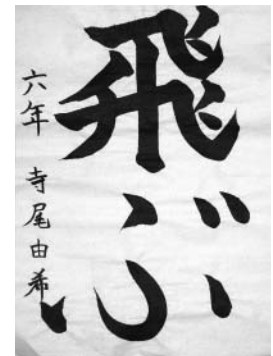 飛ぶ
六年 寺尾由希